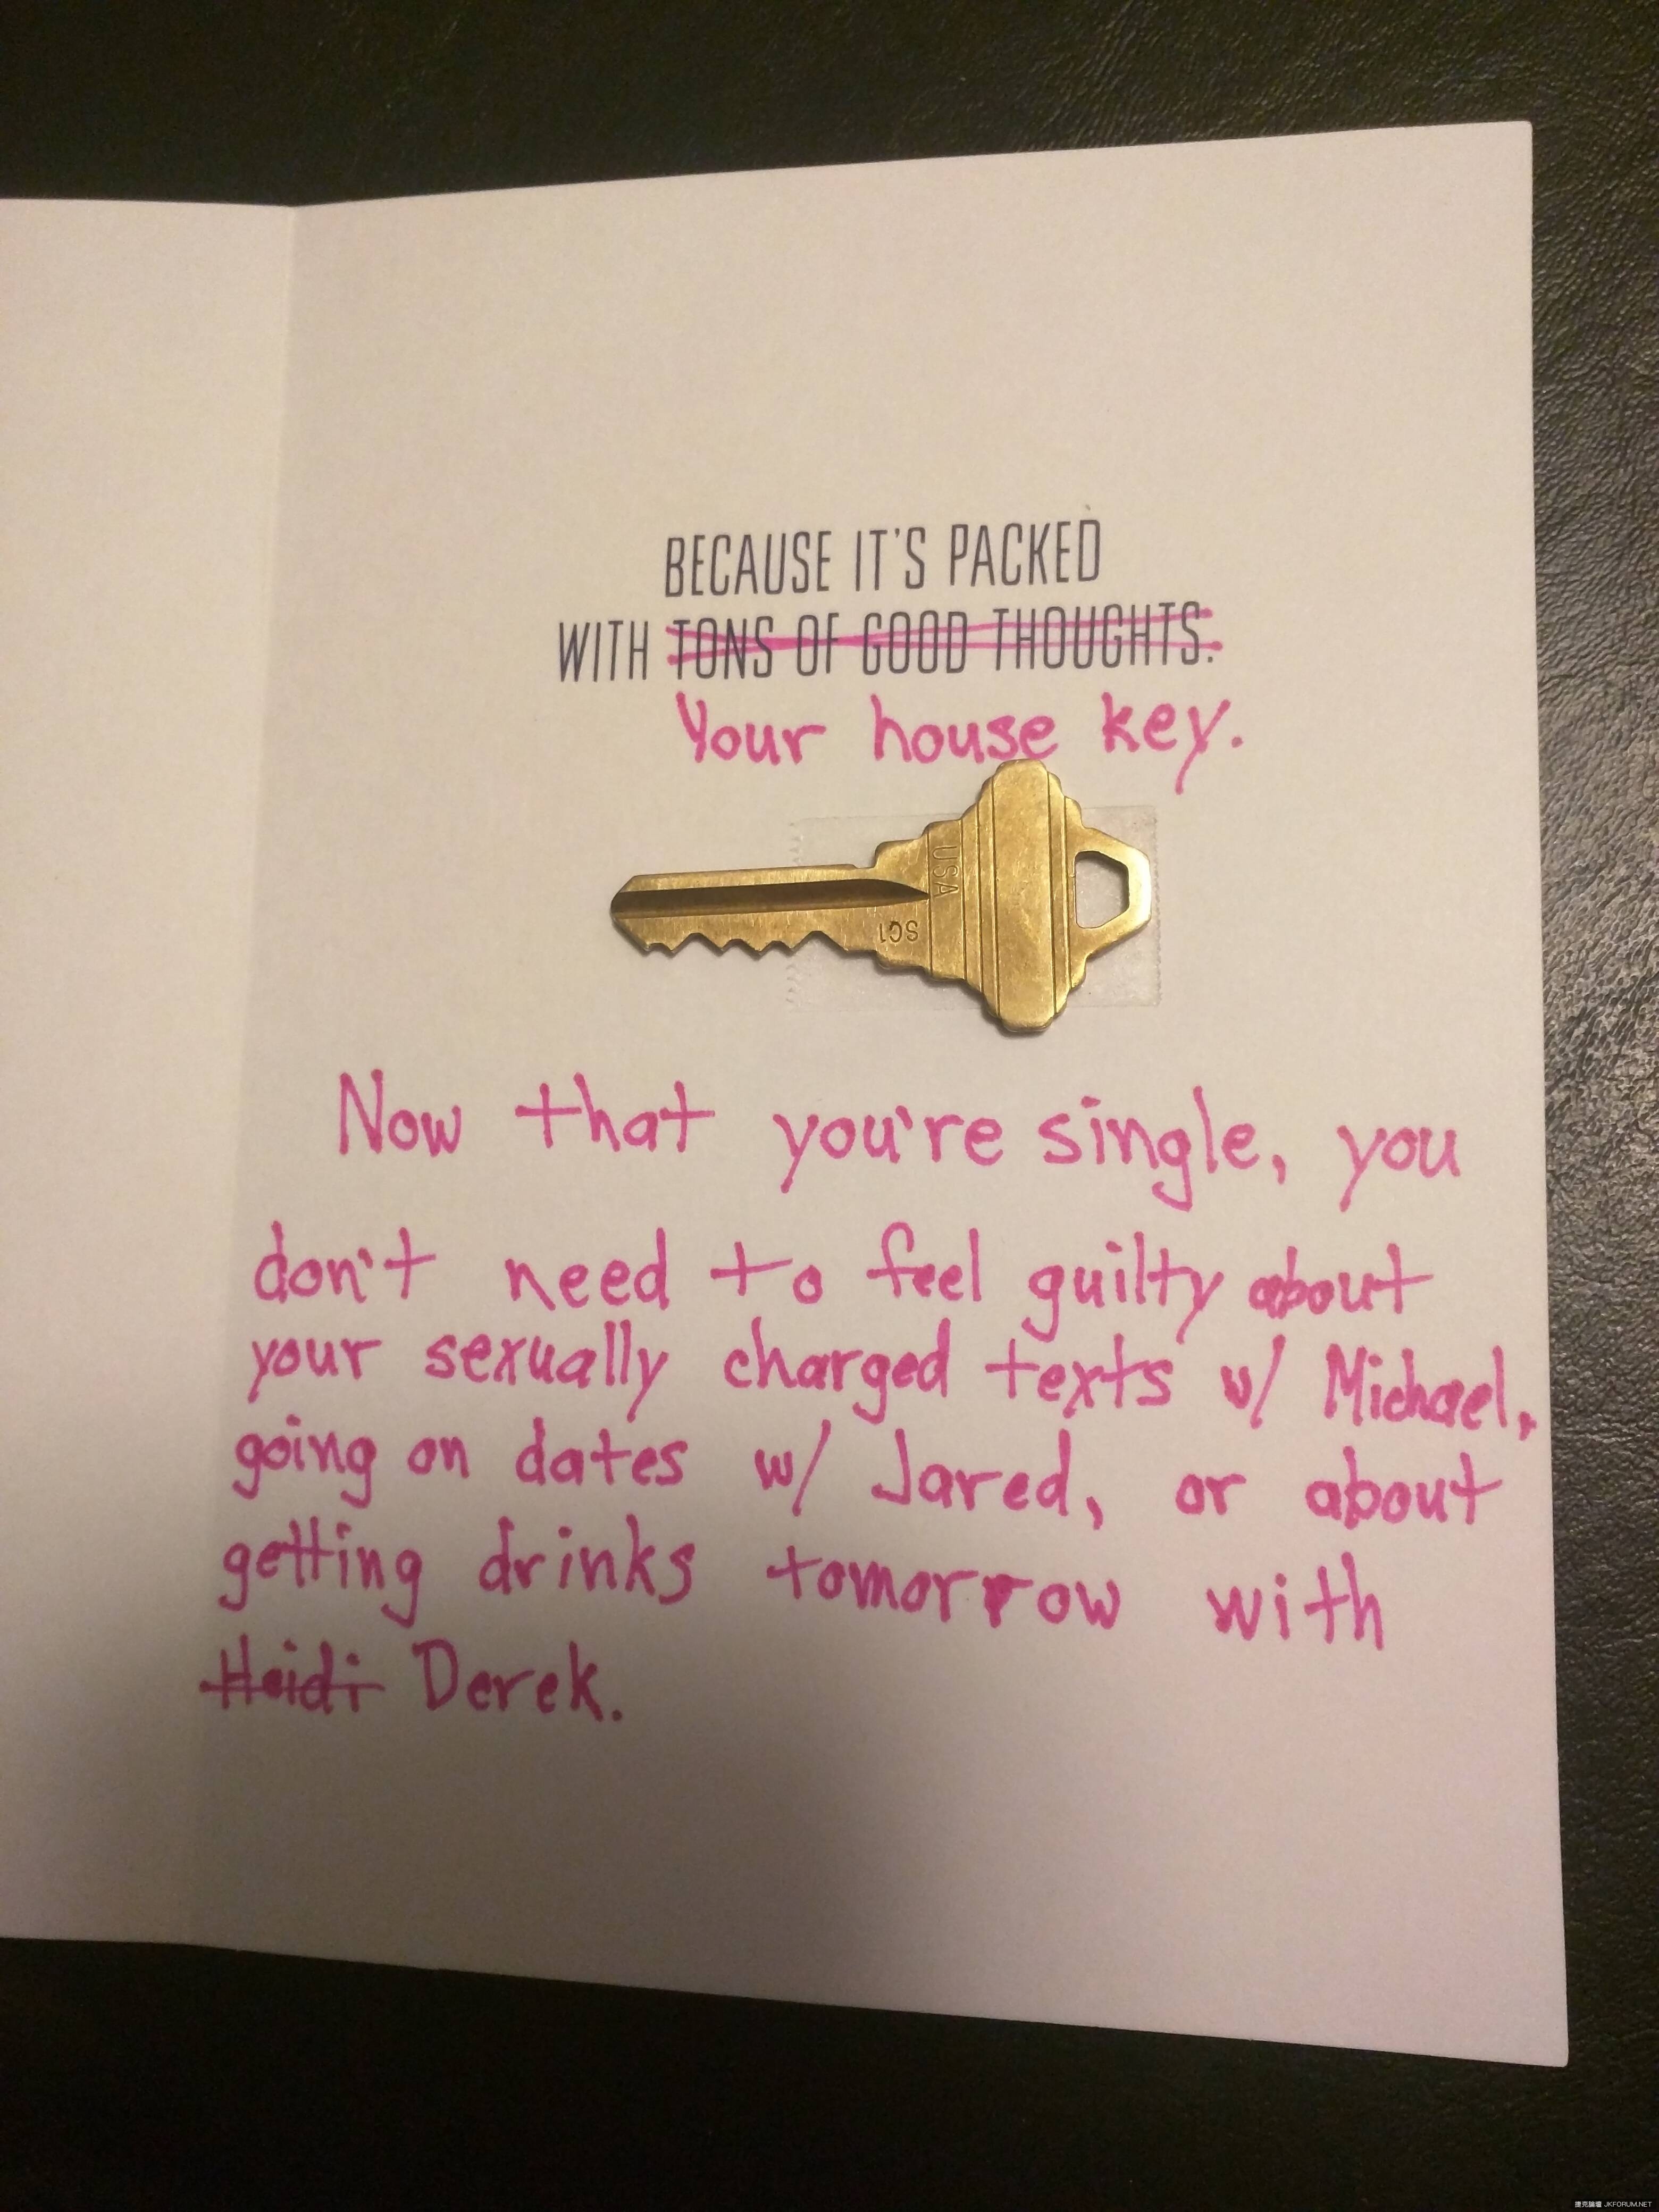 BECAUSE IT'S PACKED
WITH TONS OF GOOD THOUGHTS.
Your house key.
USA
SC1
Now that you're single, you
don't need to feel guilty about
your sexually charged texts w/ Michael,
going on dates w/ Jared, or about
getting drinks tomorrow with
Heidi Derek.
捷克論壇 JKFORUM.NET